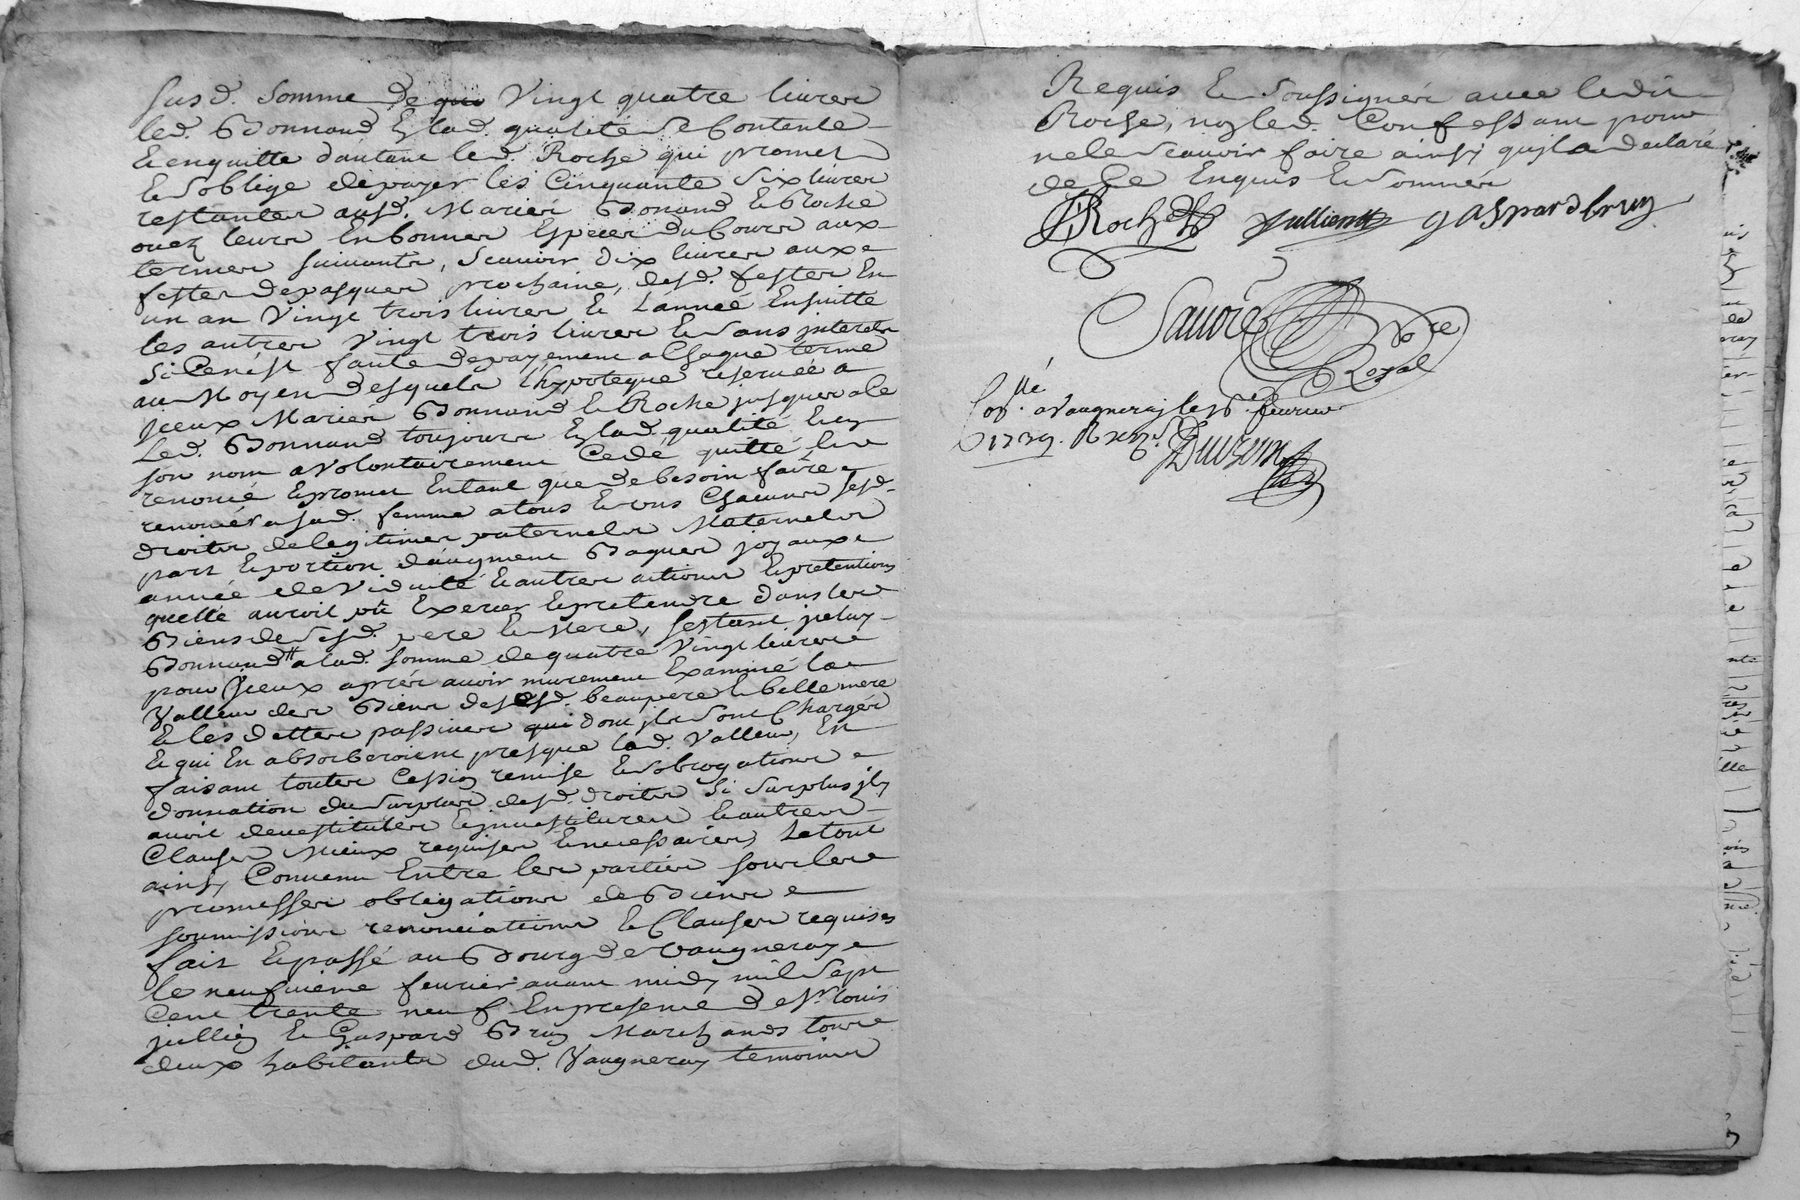 susd. somme de qui vingt quatre livres
led. Bonnand Esad. qualité se Contente
et enquitte d'autant led. Roche qui promet
et soblige de payer les Cinquante six livres
restantes ausd. Mariés Bonnand et Roche
ouez leurs En bonnes Especes du Cours aux
termes suivants, scavoir dix livres aux
festes depasques prochaine, desd. festes En
un an vingt trois livres et Lannée Ensuitte
les autres vingt trois livres et sans jnterets
si Ce nest faute depayement a Chaque terme
au Moyen desquels Lhypoteque reservée a
jceux Mariés Bonnand et Roche jusques a ce
Led. Bonnand toujours Esad. qualité et en
son nom a volontairement Cedé quitté
renoncé et promet Entant que de besoin faire
renoncer a sad. femme a tous et uns Chacuns sesd.
droits de legitimes paternels Maternels
part et portion d'augment Bagues joyaux
année de Viduité et autres actions et pretentions
quelle auroit pû Exercer et pretendre dans les
Biens de sesd. pere et Mere, sestant jceluy
Bonnand a lad. somme de quatre vingt livres
pour jceux apres avoir murement Examiné la
Valleur des Biens desesd. beaupere et belle mere
et les dettes passives qui dont jls sont Chargés
et qui En absorberoient presque lad. Valleur, En
faisant toutes Cession remise et subrogations
donnation du surplus desd. droits si surplus jl y
avoit devestitures et jnvestitures et autres
Clauses Mieux requises et necessaires, Le tout
ainsy Convenu Entre les parties sous leurs
promesses obligations de Biens
soumissions renonciations et Clauses requises
fait et passé au Bourg de Vaugneray
le neufvieme fevrier avant midy mil sept
Cent trente neuf En presence de Sr. Louis
jullien et Gaspard Bruy Marchands tous
deux habitants dud. Vaugneray temoins
Requis et soussignés avec ledit
Roche, non led. Confessant pour
ne le scavoir faire ainsy quil a declaré
de Ce Enquis et sommés
Roche Jullien gaspard bruy
Sauvré Nre
Royal
Conllé. a Vaugneray le 16e. fevrier
1739. R